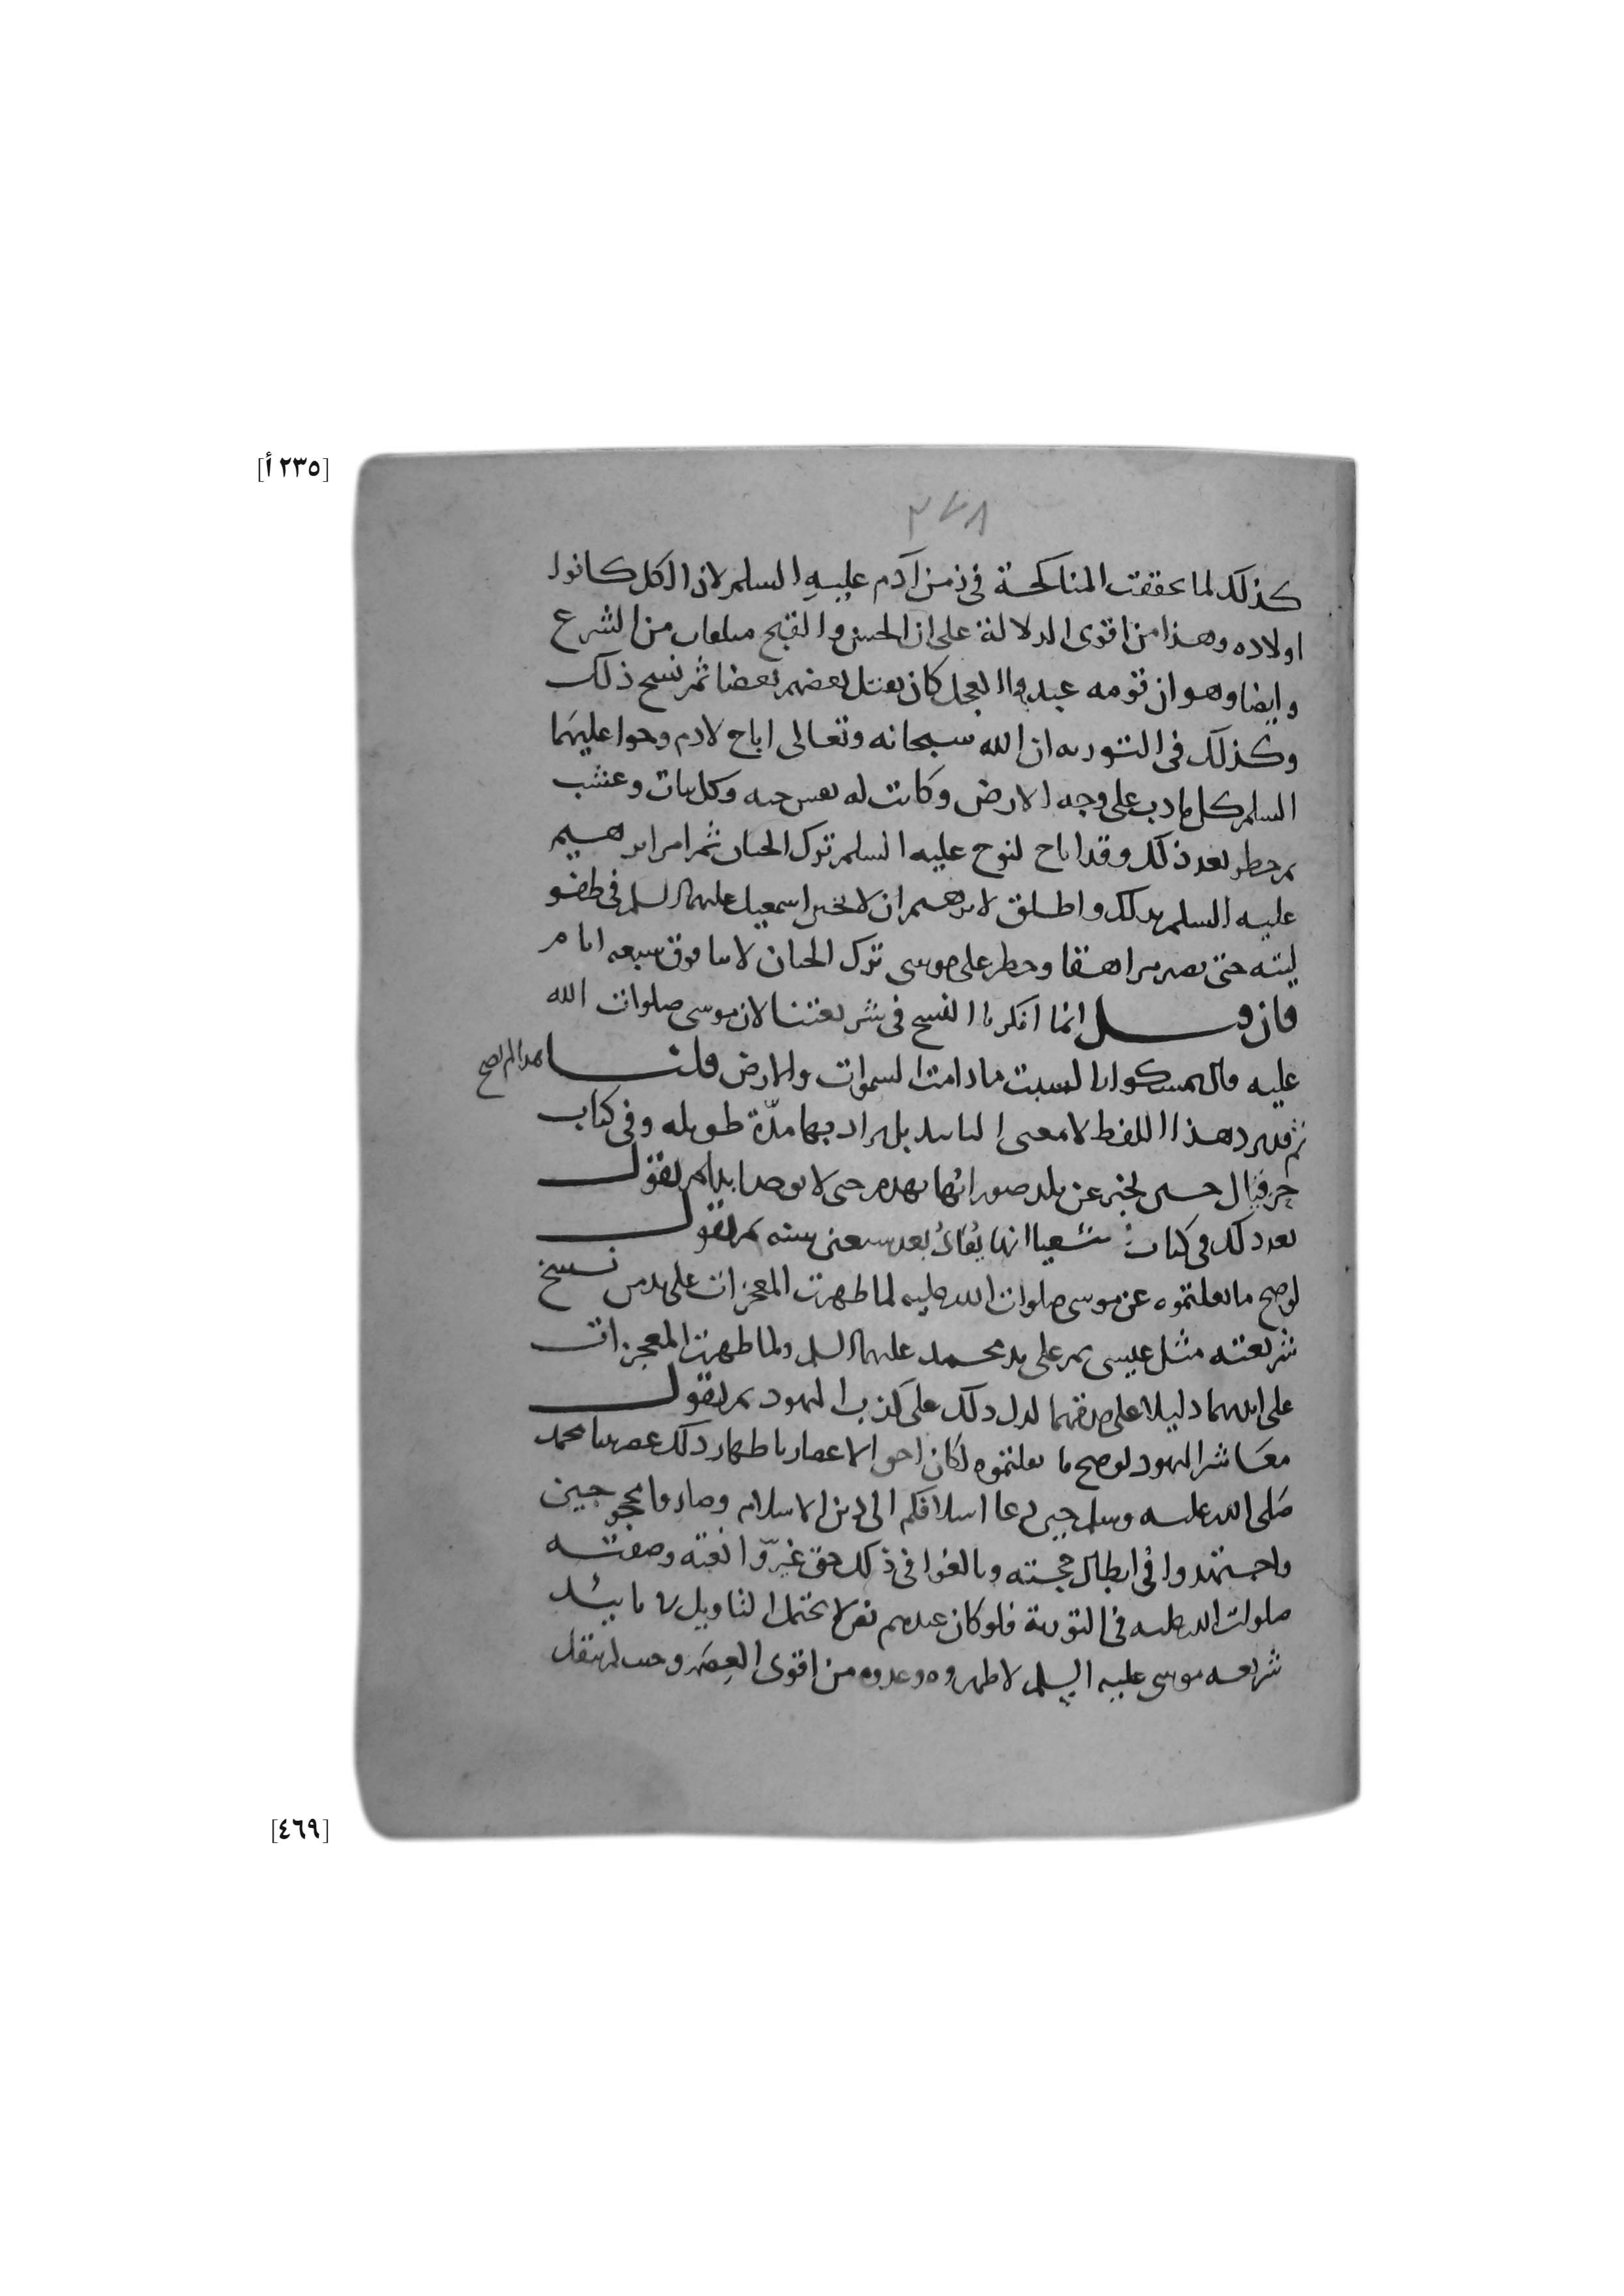 [٢٣٥ أ]
٣٧٨
كذلك لما تحققت المناكحة في زمن آدم عليه السلم لان الكل كانوا
اولاده وهذا من اقوى الدلالة على ان الحسن والقبح متلقيان من الشرع
وايضا وهو ان قومه عبدوا العجل كان يقتل بعضهم بعضا ثم نسخ ذلك
وكذلك في التورىه ان الله سبحانه وتعالى اباح لادم وحوا عليهما
السلم كل ما دب على وجه الارض وكانت له نفس حيه وكل نبات وعشب
ثم حظر بعد ذلك وقد اباح لنوح عليه السلم ترك الختان ثم امر ابرهيم
عليه السلم بذلك واطلق لابرهيم ان لا يختن اسمعيل عليهما السلم في طفو
ليته حتى يصير مراهقا وحظر على موسى ترك الختان لابنا فوق سبعه ايام
فان قيل انما انكرنا النسخ في شريعتنا لان موسى صلوات الله
عليه قال تمسكوا بالسبت ما دامت السموات والارض قلنا هذا لم يصح
ثم قد يرد هذا اللفظ لا بمعنى التابيد بل يراد بها مدّة طويله وفي كتاب
حزقيال حين يخبر عن بلد صور انها تهدم حتى لا توجد ابدا ثم يقول
بعد ذلك في كتاب شعيا انها يُعاد بعد سبعين سنه ثم نقول
لو صح ما نقلتموه عن موسى صلوات الله عليه لما ظهرت المعجزات على يد من نسخ
شريعته مثل عيسى ثم على يد محمد عليهما السلم ولما ظهرت المعجزات
على ايديهما دليلا على صدقهما لدل ذلك على كذب اليهود ثم نقول
معاشر اليهود لو صح ما نقلتموه لكان احق الاعصار باظهار ذلك عصر نبينا محمد
صلى الله عليه وسلم حين دعا اسلافكم الى دين الاسلام وصاروا محجوجين
واجتهدوا في ابطال حجته وبالغوا في ذلك حتى غيّروا نعته وصفته
صلوات الله عليه في التورىة فلو كان عندهم نص لا يحتمل التاويل في تابيد
شريعه موسى عليه السلم لاظهروه وعدوه من اقوى العصم وحيث لم ينقل
[٤٦٩]